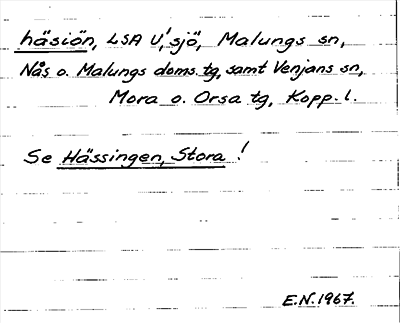 häsiön, LSA U', sjö, Malungs sn,
Nås o. Malungs doms. tg, samt Venjans sn,
Mora o. Orsa tg, Kopp. l.
Se Hässingen, Stora !
E.N. 1967.